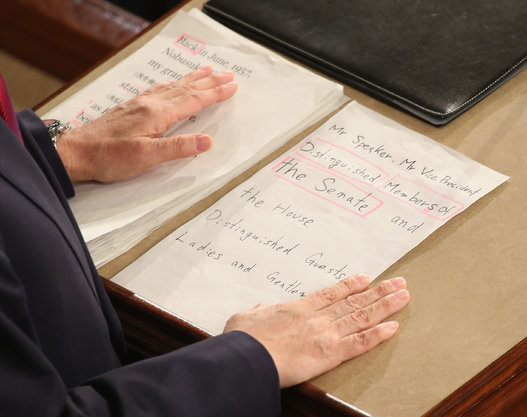 Back in June, 1957,
Nobusuk
my gran
stand
as
be
Mr Speaker, Mr Vice President
Distinguished Members of
the Senate and
the House
Distinguished Guests
Ladies and Gentlem